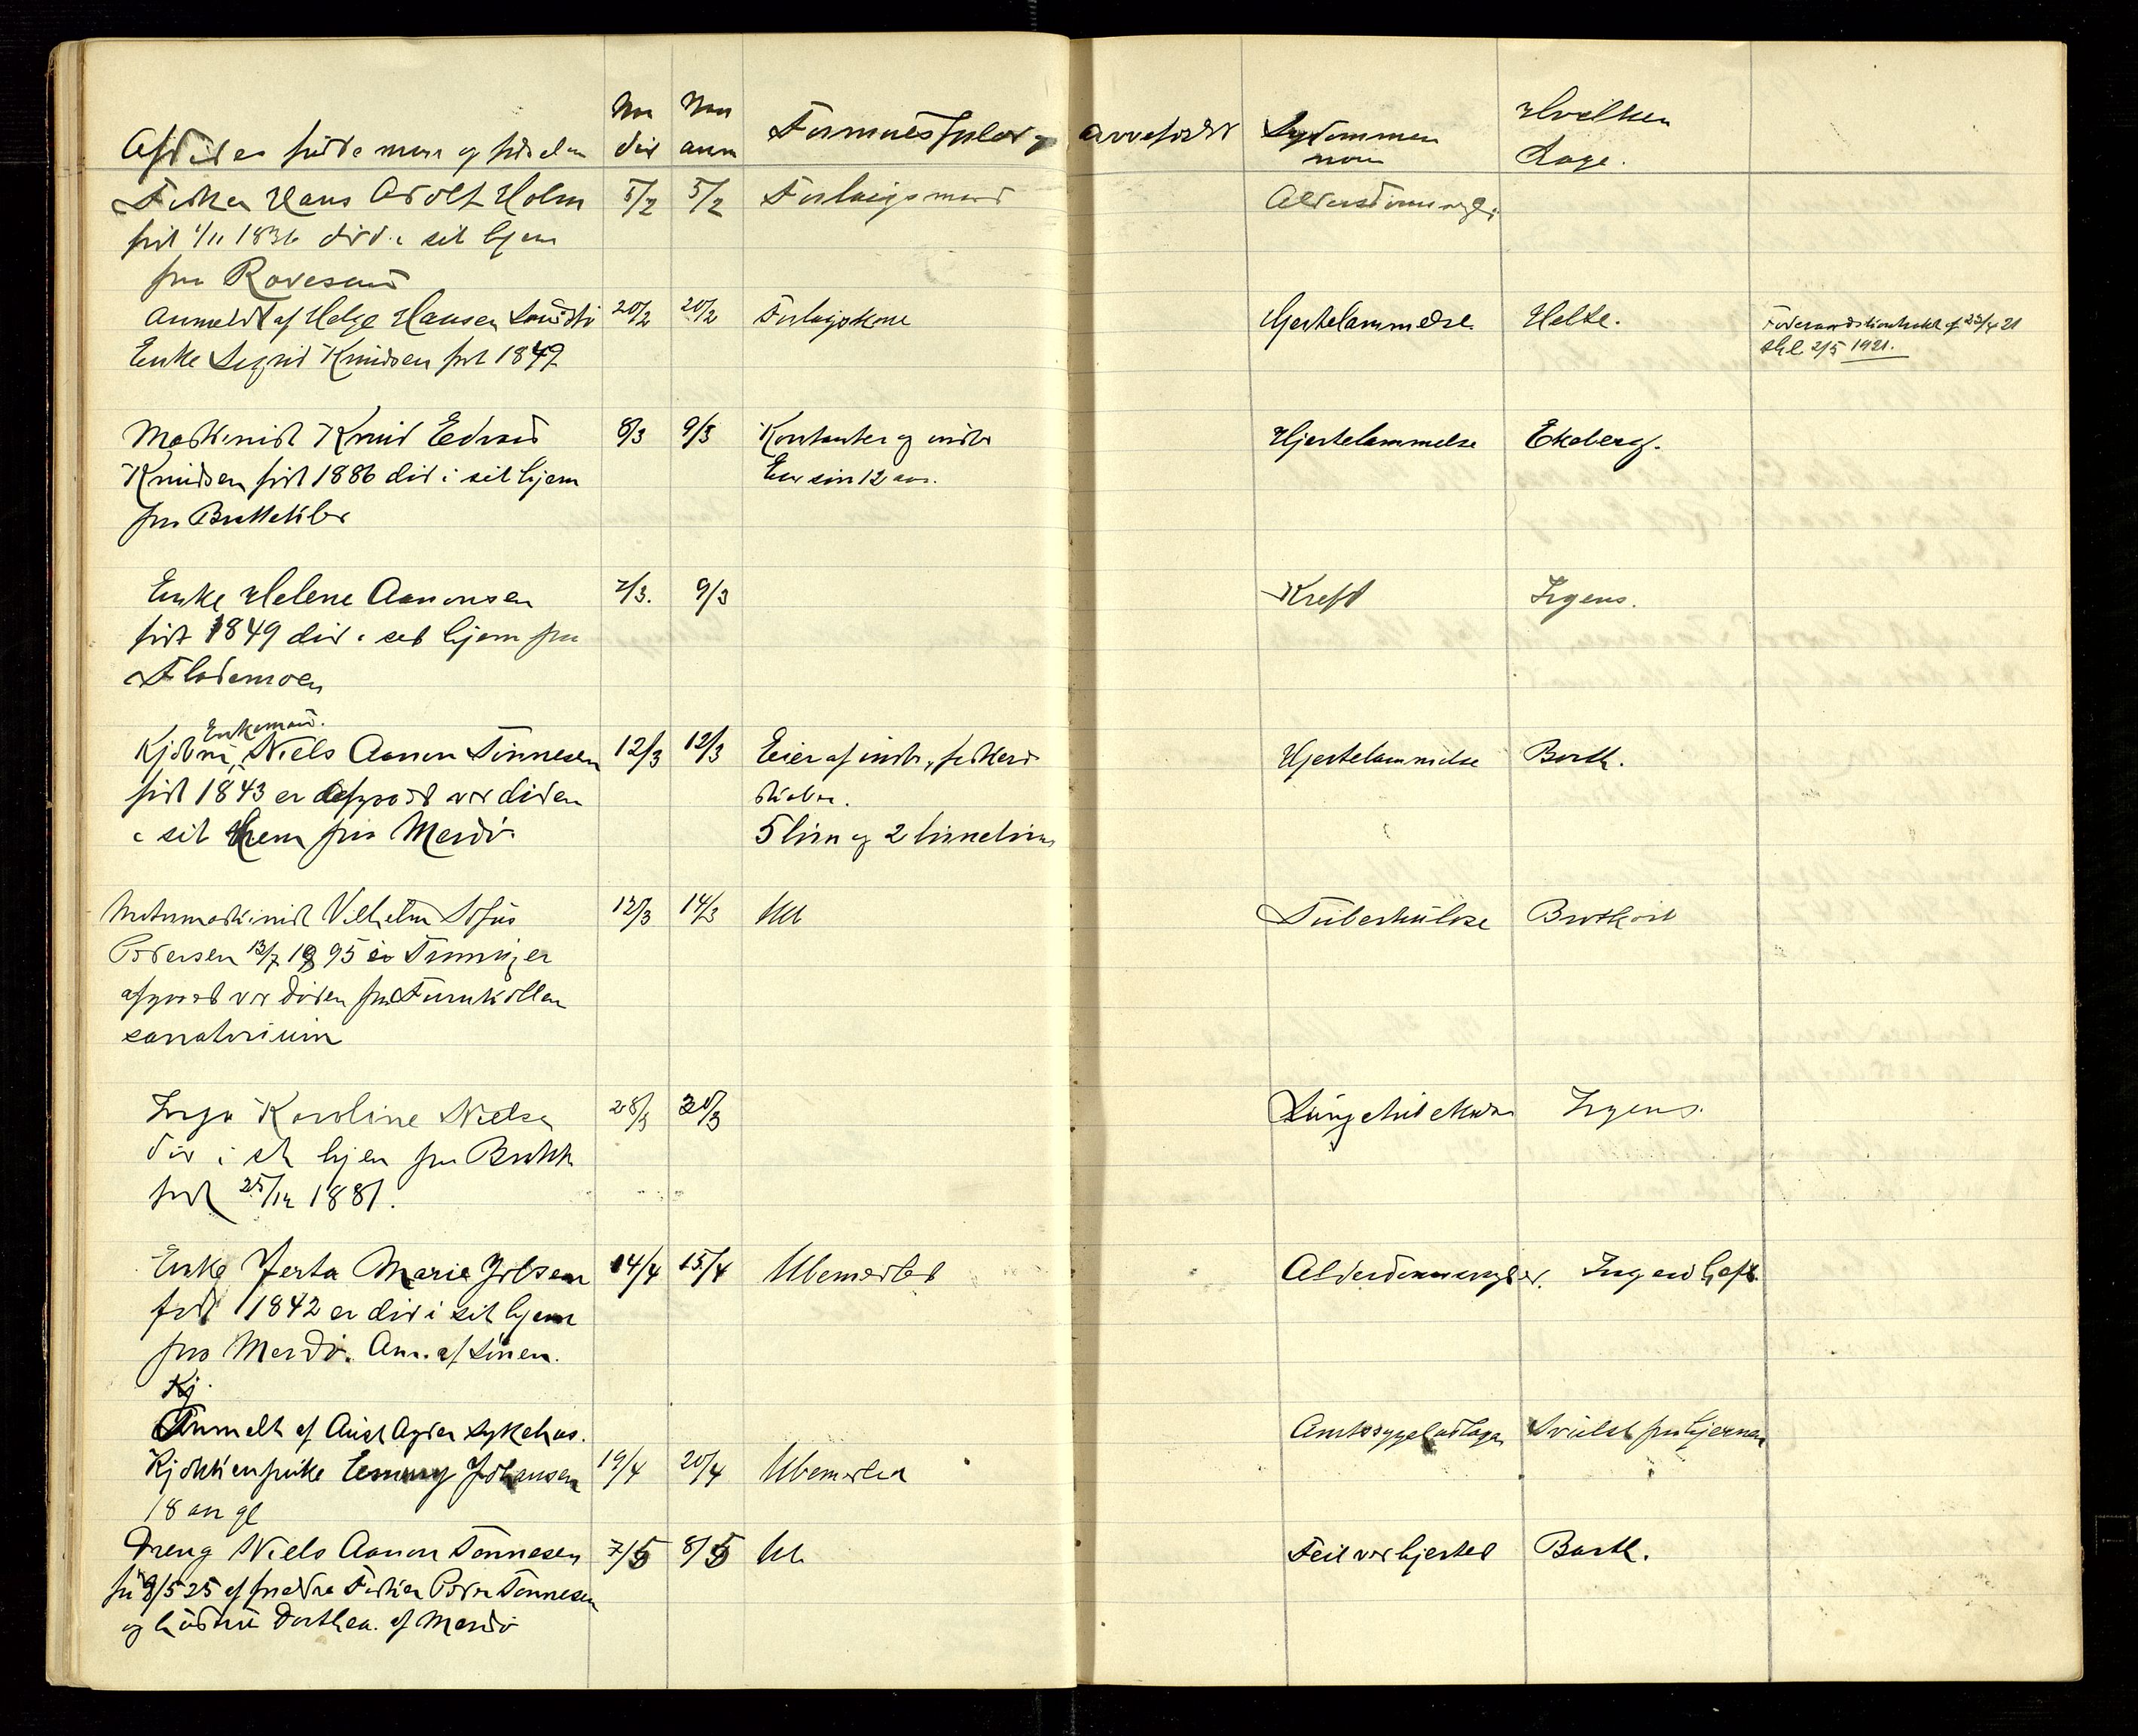 Naar Naar
død anm Formuesforhold og arveforhold Sygdommens navn Hvilken Læge.
Fisker Hans Adolf Holm 5/2 5/2 Forlaugsmand Alderdomssvaghed
født 1/11 1836 død i sit hjem
fra Ravesand
Anmeldt af Helge Hansen 20/2 20/2 Forlaugskone Hjertelammelse Helle. Føderaadskontrakt af 23/4 21
Enke Sigrid Knudsen født 1849 thl. 2/5 1921.
Maskinist Knud Edvard 8/3 9/3 Kontanter og indbo Hjertelammelse Ekeberg.
Knudsen født 1886 død i sit hjem En søn 12 aar.
fra Brattekler
Enke Helene Aanonsen 7/3. 9/3 Kreft Irgens.
født 1849 død i sit hjem fra
Flademoen
Enkemand.
Niels Aanon Tønnesen 12/3 12/3 Eier af indbo, fiskered Hjertelammelse Barth.
født 1843 er afgaaet ved døden skaber.
i sit Hjem fra Merdø 5 børn og 2 børnebørn
Motormaskinist Vilhelm Sofus 12/3 14/3 Ub Tuberkuløse
Pedersen 13/7 1895 er
afgaaet ved døden fra
sanatorium
Inga Karoline Nielsen 28/3 30/3 Irgens.
død i sit hjem fra
født 25/12 1881.
Enke Jerta Marie 14/4 15/4 Ubemerlet Alderdomssvaghed. Ingen
født 1842 er død i sit hjem
fra Merdø. Anm. af sønen.
Kj.
Anmelt af Aust Agder Sykehus. Amtssygehuslægen Svulst paa hjernen
Kjøkkenpike Emmy Johansen 19/4 20/4
18 aar gl
Dreng Niels Aanon Tønnesen 7/5 8/5 Ub Feil ved hjertet Barth.
8/5 25 af forældre Fisker Peder Tønnesen
og hustru Dorthea. af Merdø